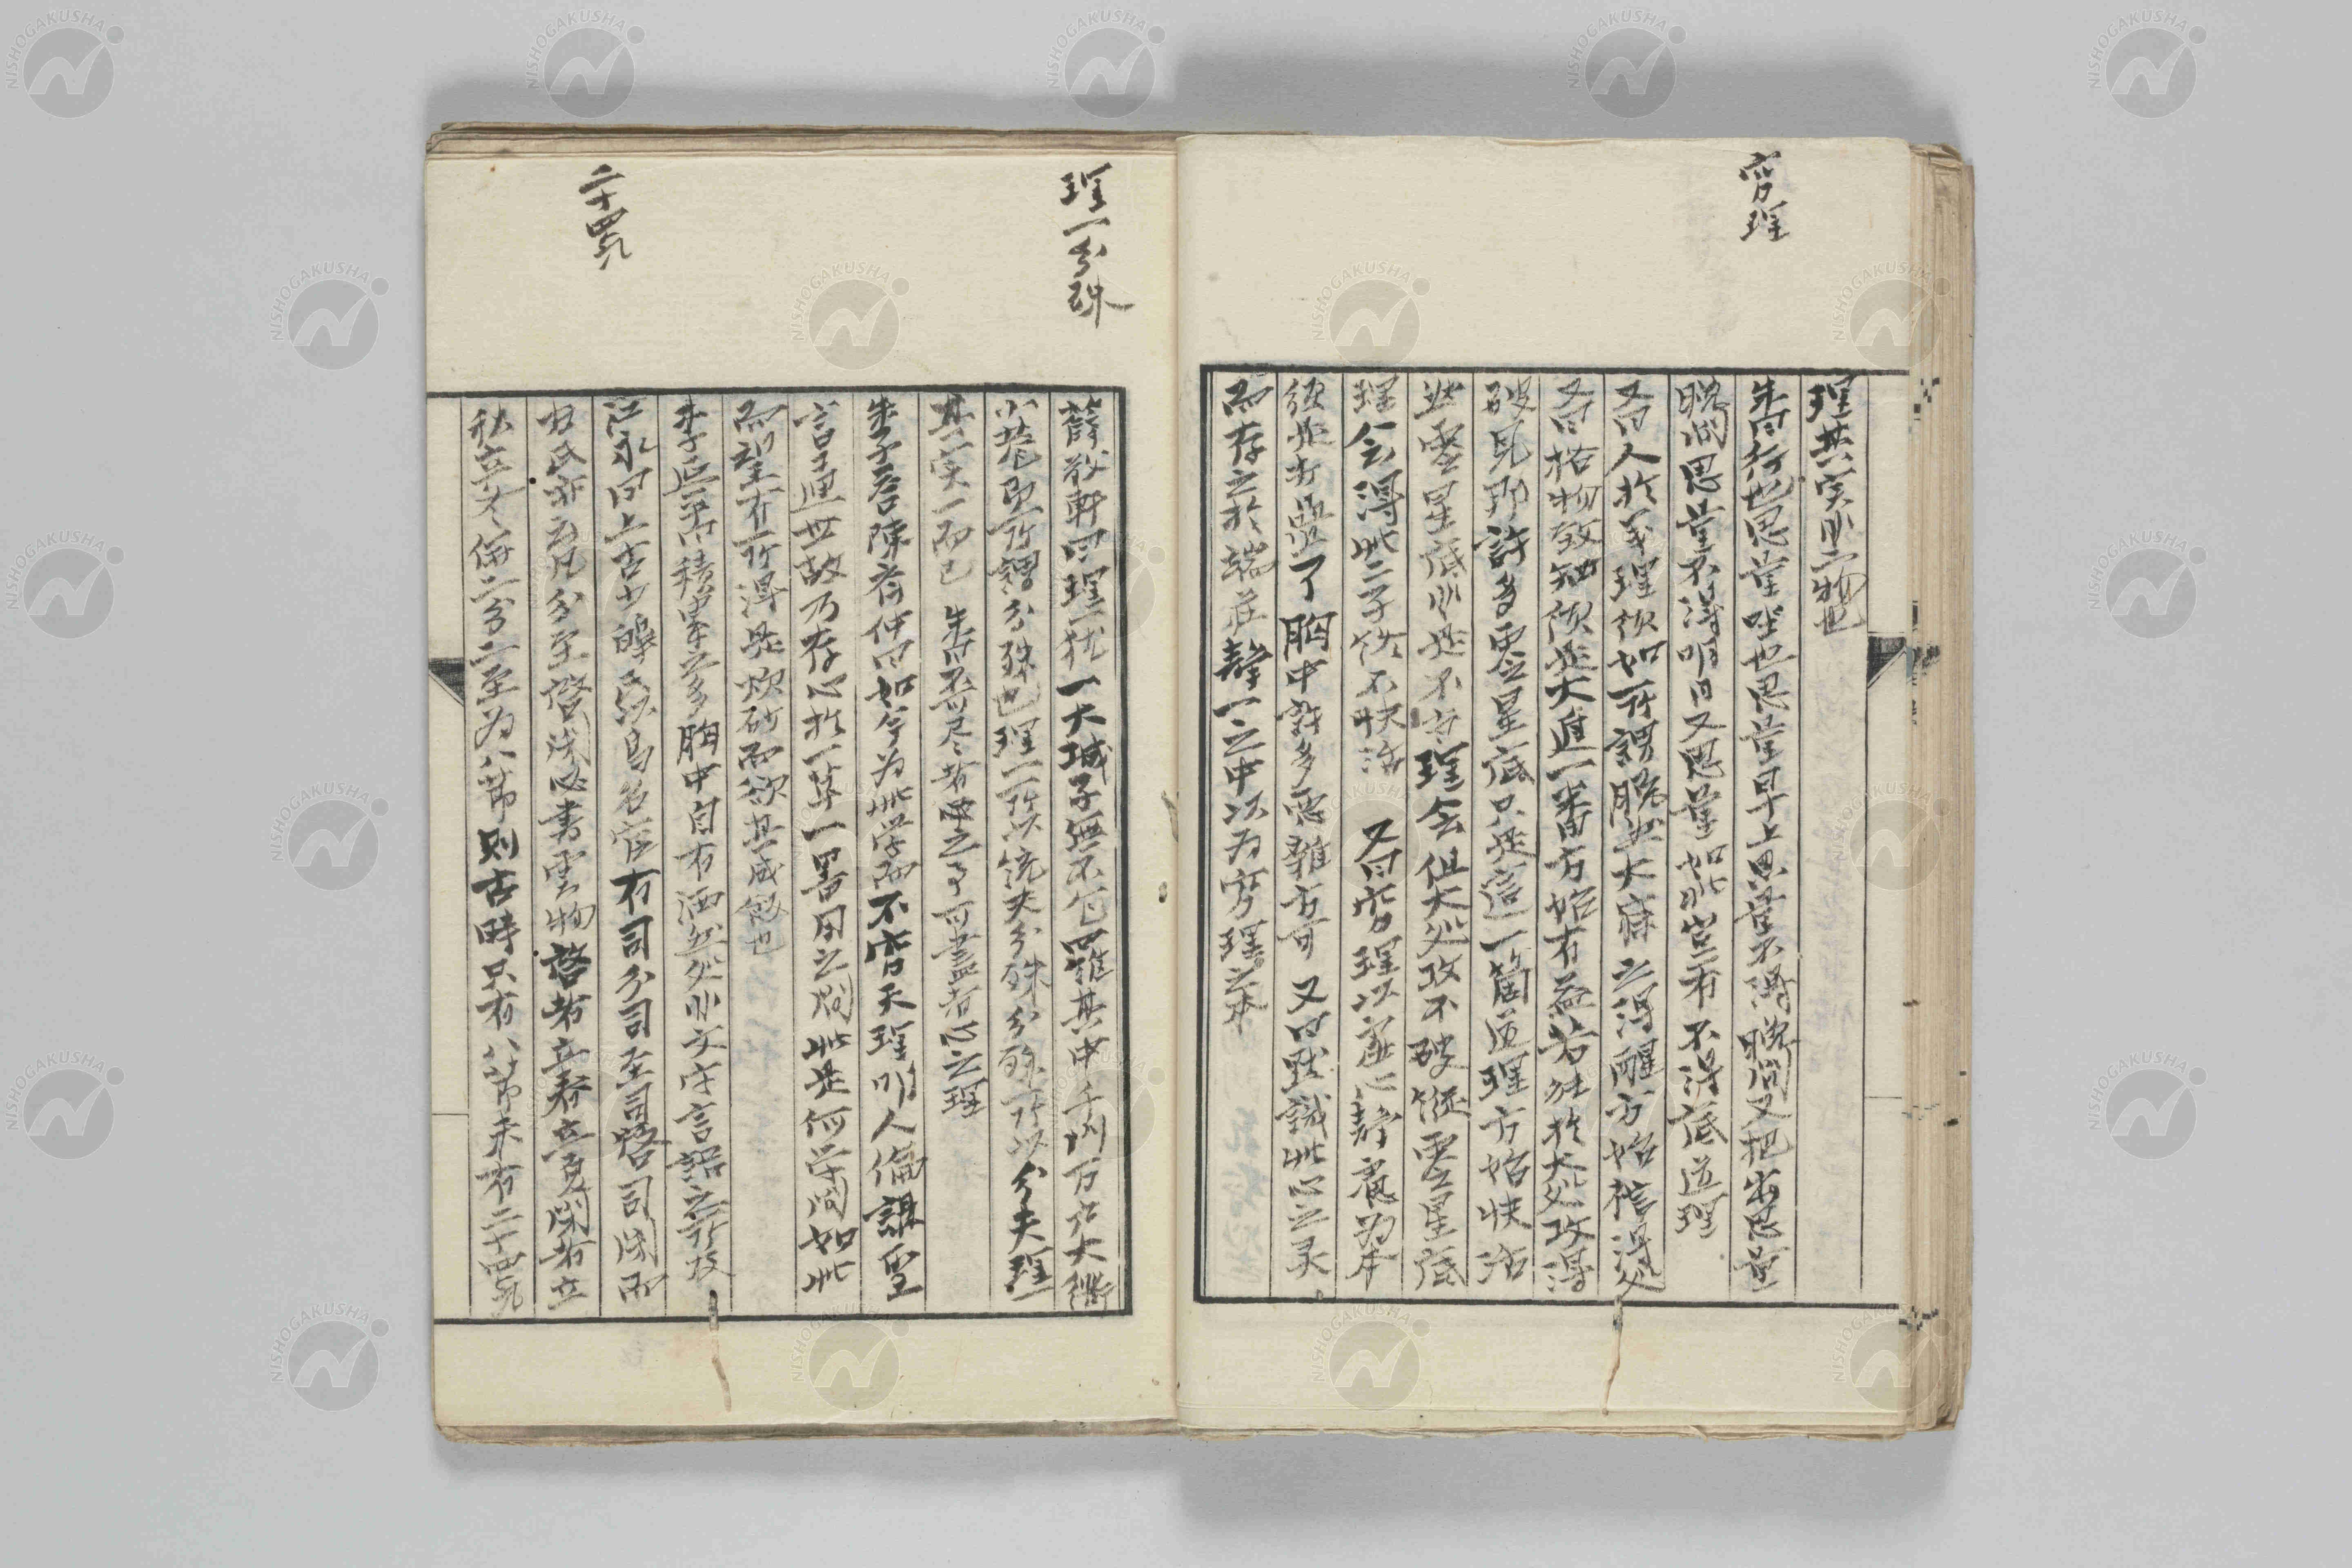 窮理
理其実非二物也
朱曰行也思量坐也思量早上思量不得晩間又把出思量
晩間思量不得明日又思量如此豈有不得底道理
又曰人於義理須如所謂脱然大寐之得醒方始信得処
又曰格物致知須是大進一番方始有益若能於大処攻得
破見那許多零星底只是這一箇道理方始快活
然零星底非是不当理会但大処攻不破縦零星底
理会得些子終不快活 又曰窮理以虚心静慮為本
須是打畳了胸中許多悪雑方可 又曰默識此心之灵
而存之於端荘静一之中以為窮理之本
理一分殊
薛敬軒曰理一猶一大城子無不包羅其中千門万戸大衢
小巷即所謂分殊也理一所以統夫分殊分殊所以分夫理
其実一而已 朱曰不可尽者之事可盡者心之理
朱子答陳斉仲曰如今為此学而不窮天理明人倫講聖
言通世故乃存心於一草一器用之間此是何学問如此
而望有所得是炊砂而欲其成飯也
李子曰若積累多胸中自有洒然処非文字言語之所及
二十四気
江永曰上古少皞氏以鳥名官有司分司至司啓司閉而
左氏亦云凡分至啓閉必書雲物啓者立春立夏閉者立
秋立冬併二分二至為八節則古時只有八節未有二十四気